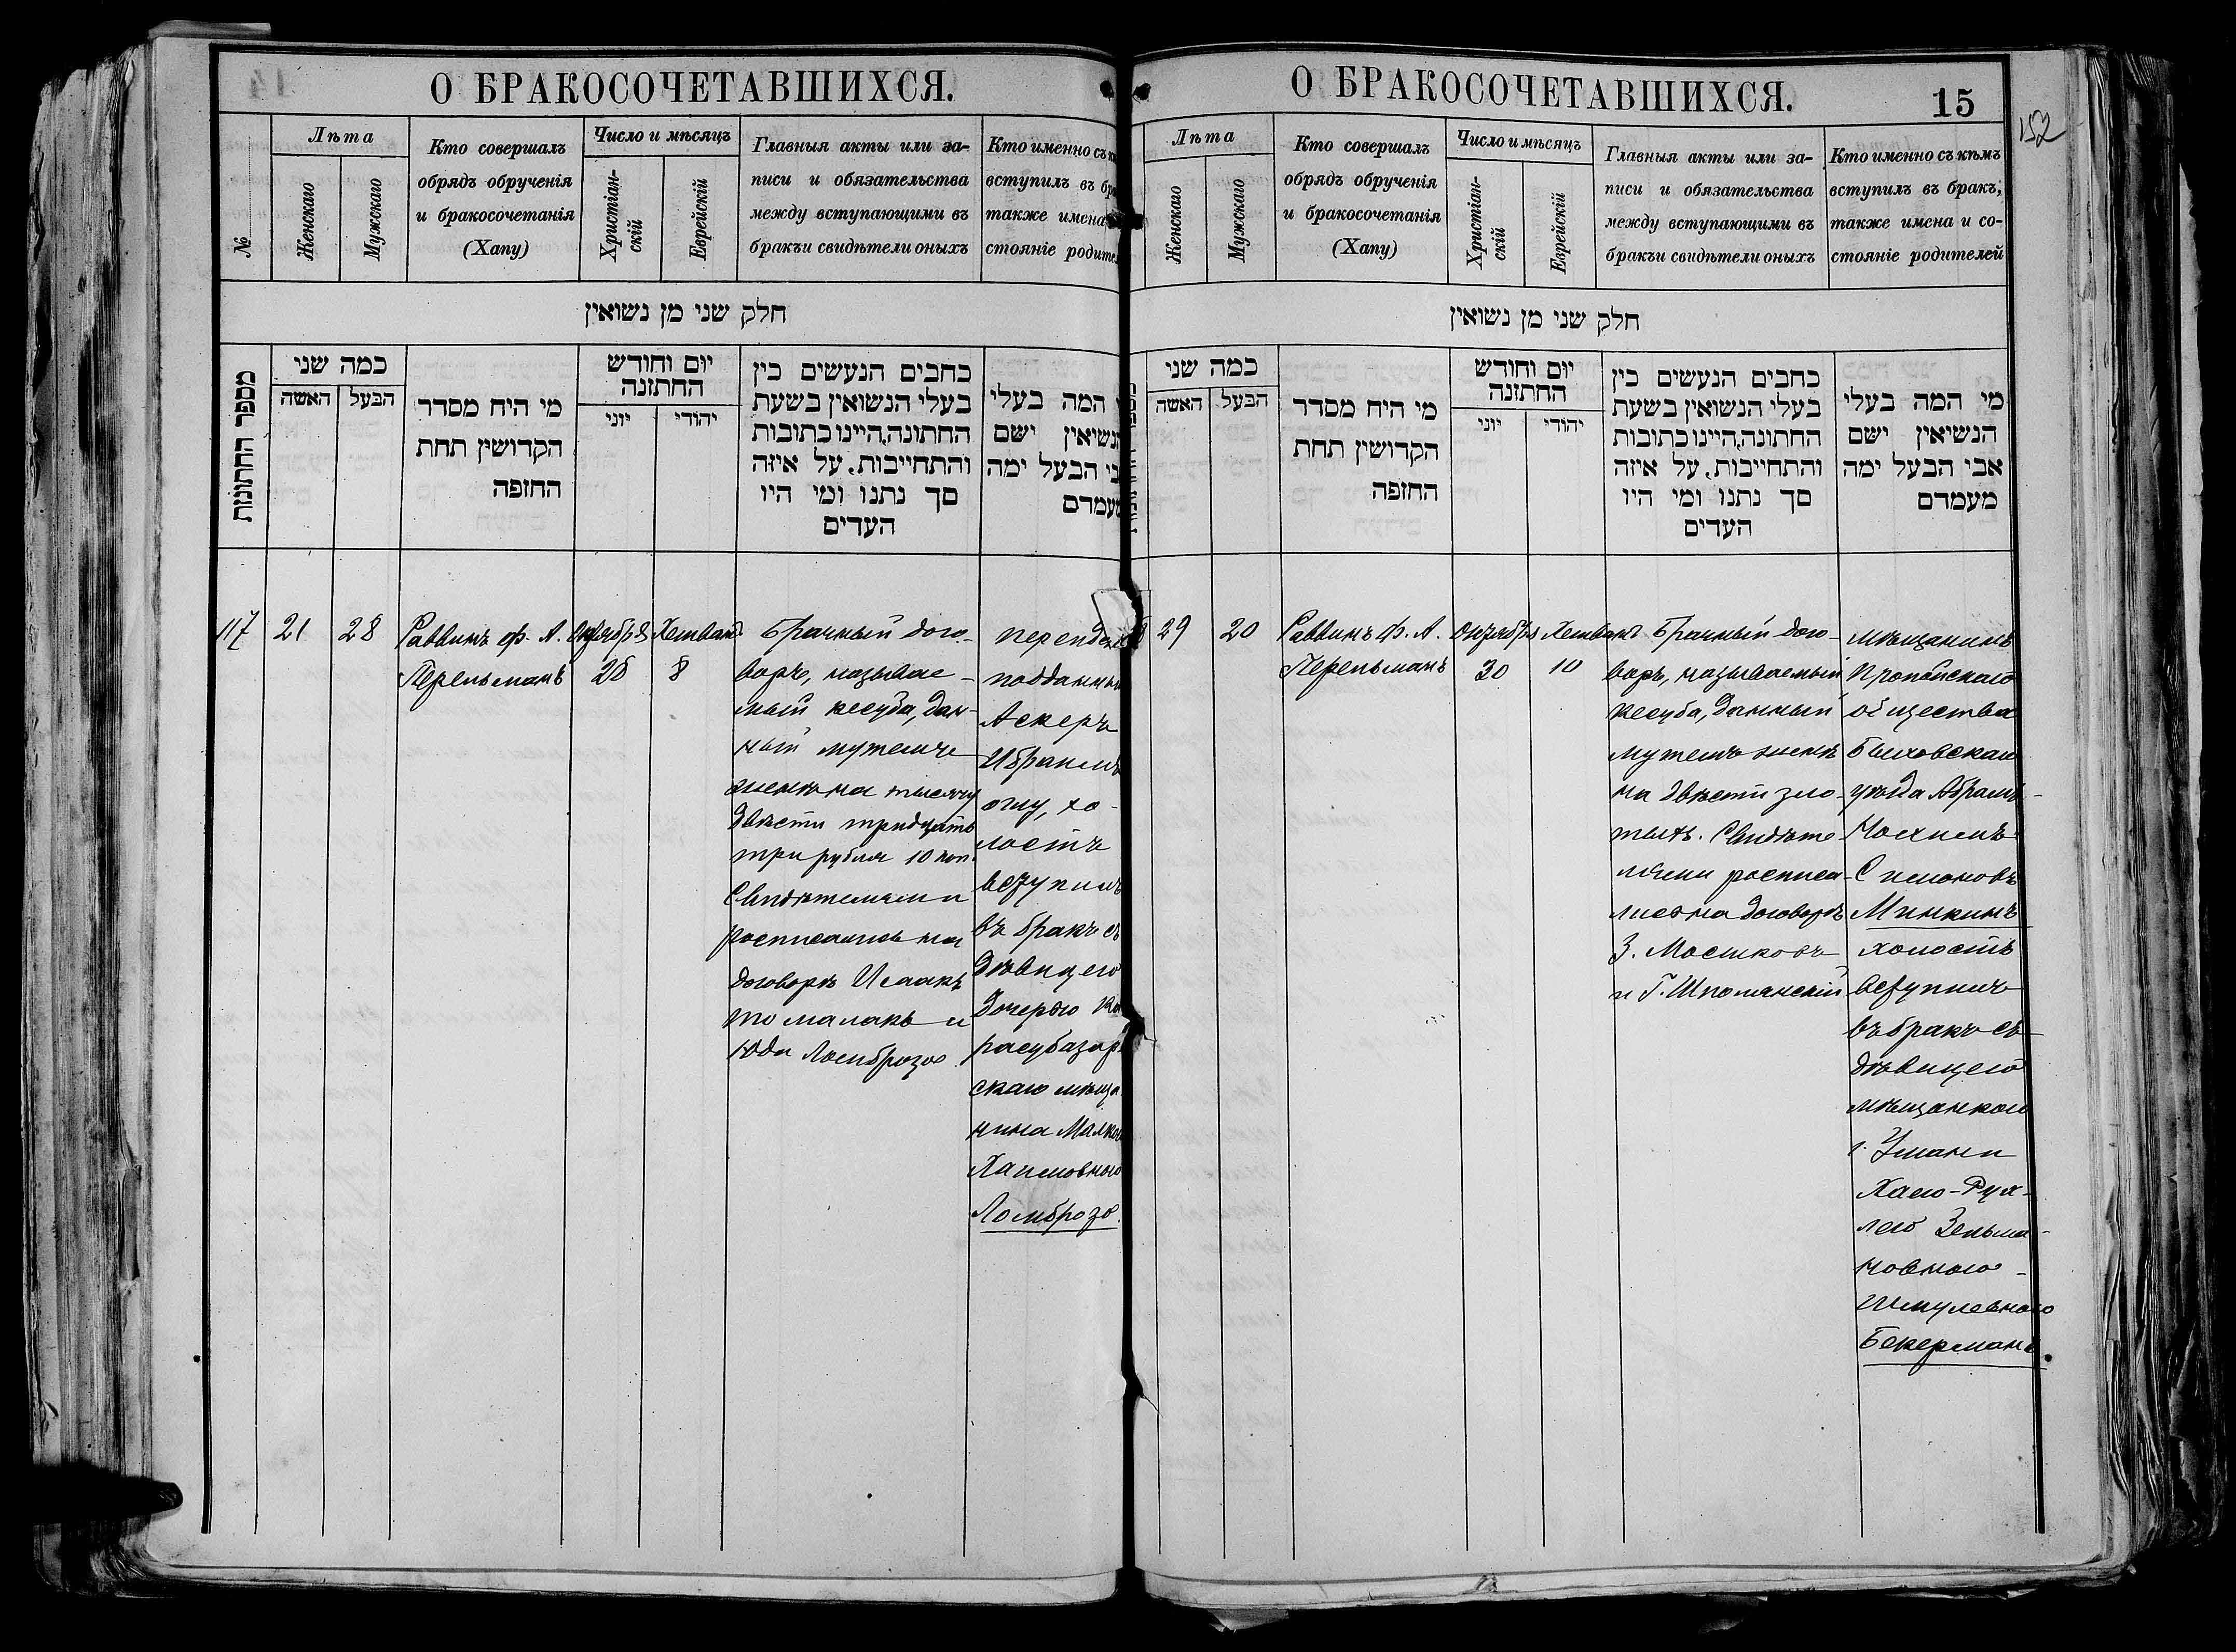 О БРАКОСОЧЕТАВШИХСЯ.
№
Лѣта
Женскаго
Мужскаго
Кто совершалъ
обрядъ обрученія
и бракосочетанія
(Хапу)
Число и мѣсяцъ
Христіан-
скій
Еврейскій
Главныя акты или за-
писи и обязательства
между вступающими въ
бракъи свидѣтели оныхъ
Кто именно съ
вступилъ въ
также имена
стояніе
חלק שני מן נשואין
מספר החתונות
כמה שני
האשה
הבעל
מי היח מסדר
הקדושין תחת
החופה
יום וחודש
החתונה
יוני
יהודי
כחבים הנעשים כין
בעלי הנשואין בשעת
החתונה,היינו כתובות
והתחייבות. על איזה
סך נתנו ומי היו
העדים
המה בעלי
ישם
הבעל ימה
117
21
28
Раввинъ ф. А.
Перельманъ
Октября
28
Хешванъ
8
Брачный дого-
воръ, называе-
мый кесуба, дан-
ный мужемъ
женѣ на тысячу
двѣсти тридцать
три рубля 10 коп.
Свидѣтелями
росписались на
договорѣ Исаакъ
Томалакъ и
Юда Ломброзо
персидск
подданный
Аскеръ
Ибрагимъ
оглу, хо-
лостъ
вступилъ
въ бракъ съ
дѣвицею
дочерью Ка
расубазар
скаго мѣща
нина Малкою
Хаимовною
Ломброзо.
О БРАКОСОЧЕТАВШИХСЯ.
15
152
Лѣта
Женскаго
Мужскаго
Кто совершалъ
обрядъ обрученія
и бракосочетанія
(Хапу)
Число и мѣсяцъ
Христіан-
скій
Еврейскій
Главныя акты или за-
писи и обязательства
между вступающими въ
бракъи свидѣтели оныхъ
Кто именно съ кѣмъ
вступилъ въ бракъ,
также имена и со-
стояніе родителей
חלק שני מן נשואין
כמה שני
האשה
הבעל
מי היח מסדר
הקדושין תחת
החופה
יום וחודש
החתונה
יוני
יהודי
כחבים הנעשים כין
בעלי הנשואין בשעת
החתונה,היינו כתובות
והתחייבות. על איזה
סך נתנו ומי היו
העדים
מי המה בעלי
הנשיאין ישם
אבי הבעל ימה
מעמדם
29
20
Раввинъ ф. А.
Перельманъ
Октября
30
Хешванъ
10
Брачный дого-
воръ, называемый
кесуба, данный
мужемъ женѣ
на двѣсти зло-
тыхъ. Свидѣте-
лями росписа-
лись на договорѣ
З. Мосиковъ
и Г. Шполянскій
мѣщанинъ
Пропойскаго
общества
Быховскаго
уѣзда Абрамъ-
Нохимъ
Симоновъ
Минкинъ
холостъ
вступилъ
въ бракъ съ
дѣвицею
мѣщанкою
г. Умани
Хаею-Рух-
лею Зельма-
новною-
Шмулевною
Бекерманъ.